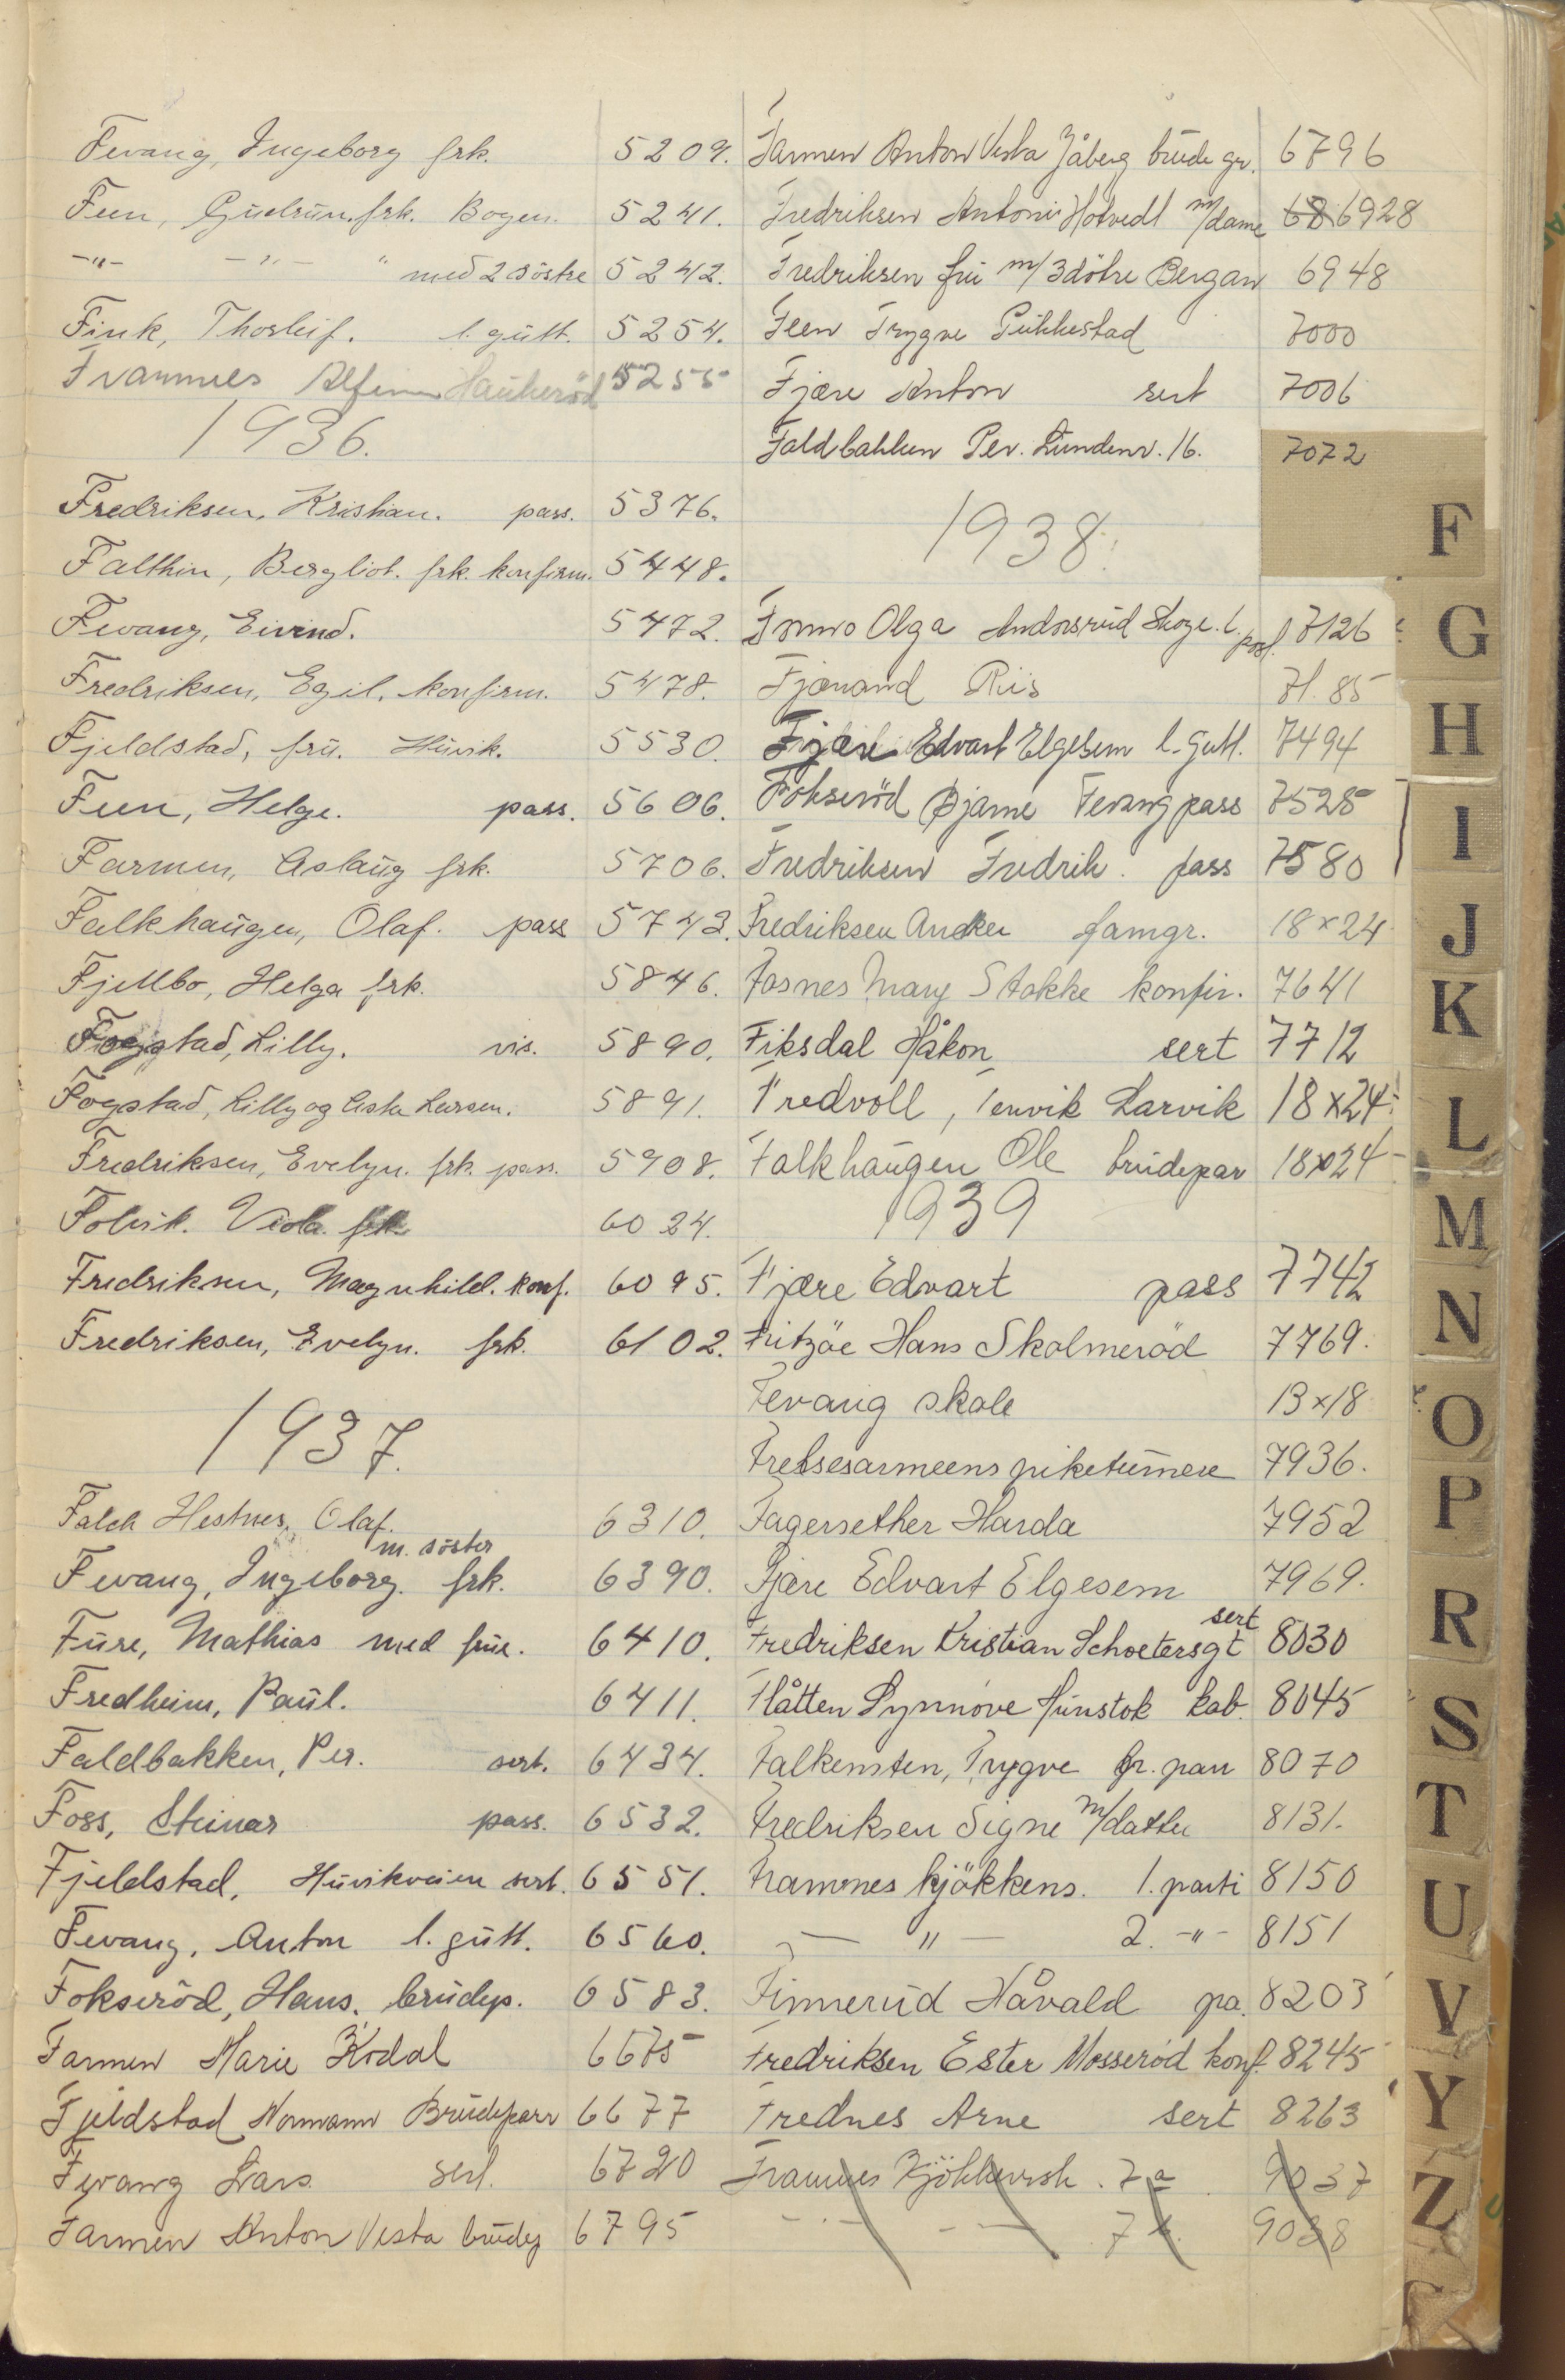 Fevang, Ingeborg frk. 5209.
Feen, Gudrun. frk. Bogen. 5241.
-"- -"- " med 2 söstre 5242.
Fink, Thorleif. l. gutt. 5254.
Framnes Alfin Haukeröd 5255
1936.
Fredriksen, Kristian. pass. 5376.
Falthin, Bergliot. frk. konfirm. 5448.
Fevang, Eivind. 5472.
Fredriksen, Egil. konfirm. 5478.
Fjeldstad, fru. Huvik. 5530.
Feen, Helge. pass. 5606.
Farmen, Aslaug frk. 5706.
Falkhaugen, Olaf. pass 5743.
Fjellbo, Helga frk. 5846.
Fogstad, Lilly. vis. 5890.
Fogstad, Lilly og Asta Larsen. 5891.
Fredriksen, Evelyn. frk. pass. 5908.
Folvik. Viola. frk 6024.
Fredriksen, Magnhild. konf. 6095.
Fredriksen, Evelyn. frk. 6102.
1937.
Falch Hestnes, Olaf. 6310.
m. söster
Fevang, Ingeborg. frk. 6390.
Fure, Mathias med frue. 6410.
Fredheim, Paul. 6411.
Faldbakken, Per. sert. 6434.
Foss, Steinar pass. 6532.
Fjeldstad, Huvikveien sert. 6551.
Fevang, Anton l. gutt. 6560.
Fokseröd, Hans. brudep. 6583.
Farmen Marie Kodal 6675
Fjeldstad Normann Brudeparr 6677
Fevang Lars sert. 6720
Farmen Anton Vesta brudep 6795
Farmen Anton Vesta Jåberg brude gr. 6796
Fredriksen Antoni Hotvedt m/dame 68 6928
Fredriksen fru m/3 dötre Bergan 6948
Feen Trygve Pukkestad 7000
Fjære Anton sert 7006
Faldbakken Per. Lundenv. 16. 7072
1938.
Olga Andorsrud Skoge. l. pos. 7126
Fjænand Riis 71.85
Fjære Edvart Elgesem l. Gutt. 7494
Fokseröd Bjarne Fevang pass 7525
Fredriksen Fredrik. pass 7580
Fredriksen Ancker famgr. 18×24
Fosnes Mary Stokke konfir. 7641
Fiksdal Håkon sert 7712
Fredvoll, Tenvik Larvik 18×24
Falkhaugen Ole brudepar 18×24
1939
Fjære Edvart pass 7742
Fritzöe Hans Skolmeröd 7769.
Fevang skole 13×18
Frelsesarmeens piketurnere 7936.
Fagersether Harda 7952
Fjære Edvart Elgesem 7969.
sert
Fredriksen Kristian Schoetersgt 8030
Flåtten Synnöve Hunstok kab. 8045
Falkensten, Trygve gr. par 8070
Fredriksen Signe m/datter 8131.
Framnes kjökkens. 1. parti 8150
— " — 2. -"- 8151
Finnerud Håvald pa. 8203
Fredriksen Ester Mosseröd konf. 8245
Frednes Arne sert 8263
Framnes Kjökkensk. 7a 9037
- - - - 7b. 9038
F
G
H
I
J
K
L
M
N
O
P
R
S
T
U
V
Y
Z